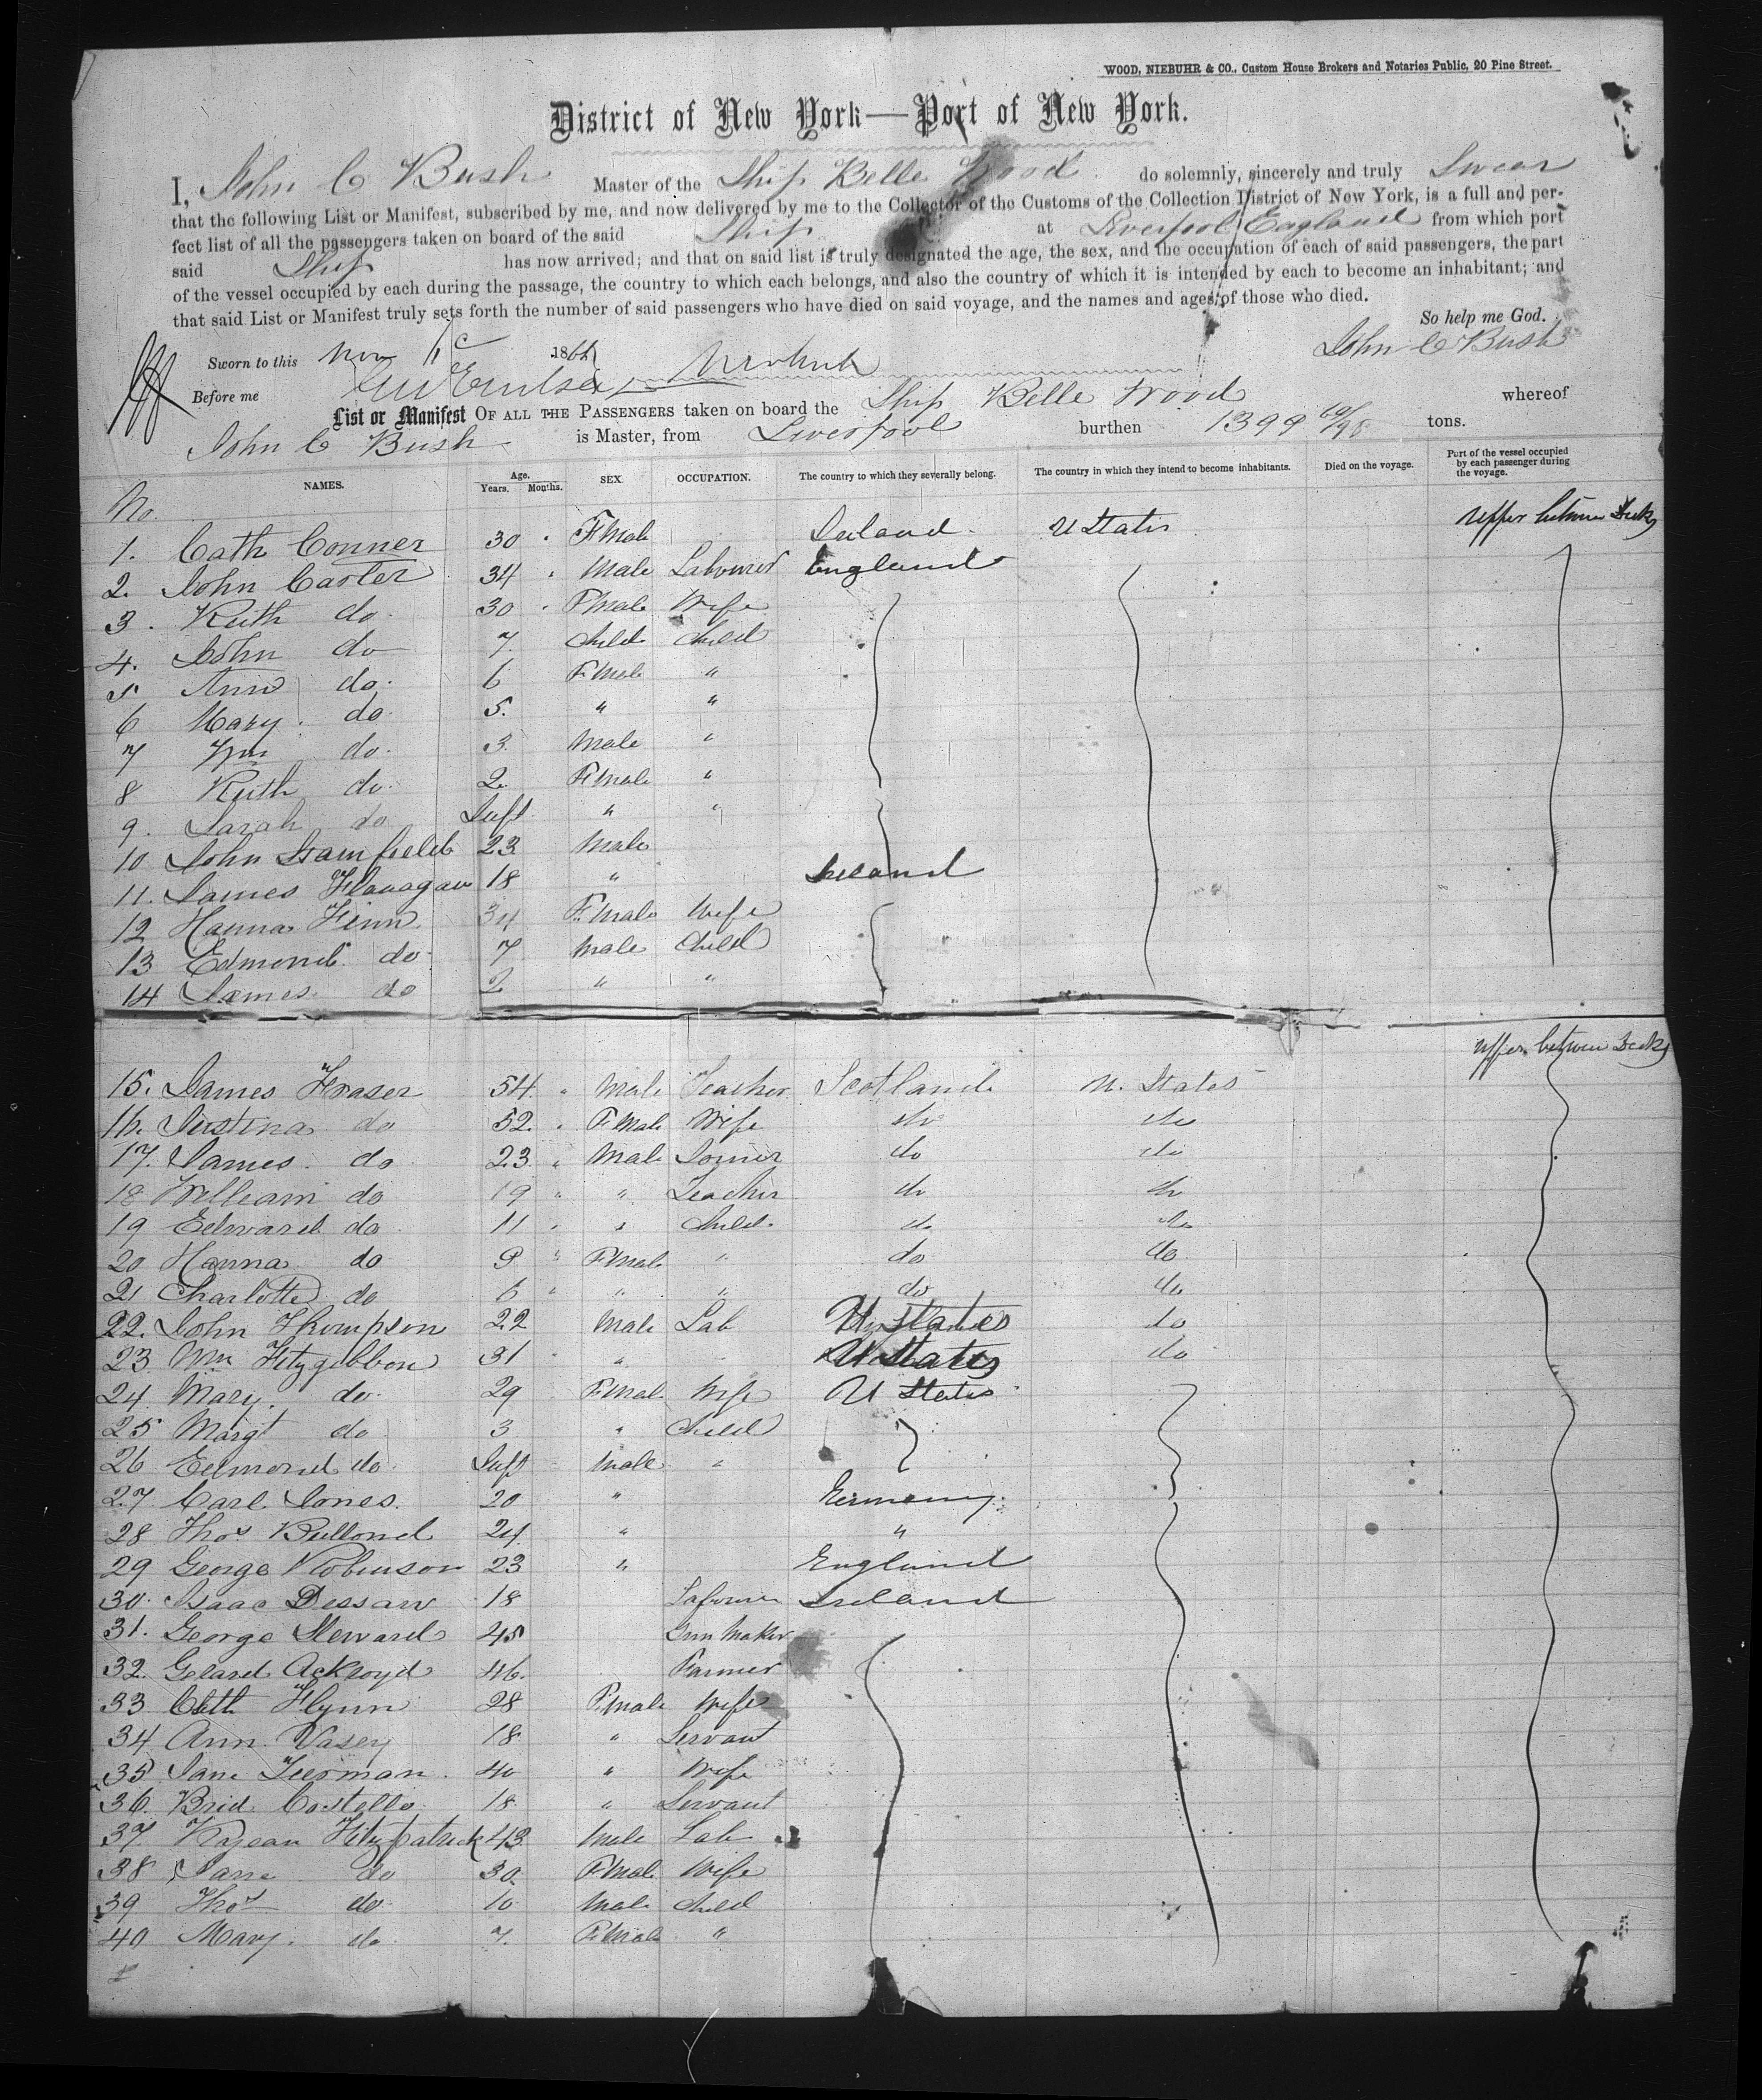 WOOD, NIEBUHR & CO., Custom House Brokers and Notaries Public, 20 Pine Street.
District of New York—Port of New York.
I, John C Bush Master of the Ship Belle Wood do solemnly, sincerely and truly Swear
that the following List or Manifest, subscribed by me, and now delivered by me to the Collector of the Customs of the Collection District of New York, is a full and per-
fect list of all the passengers taken on board of the said Ship at Liverpool England from which port
said Ship has now arrived; and that on said list is truly designated the age, the sex, and the occupation of each of said passengers, the part
of the vessel occupied by each during the passage, the country to which each belongs, and also the country of which it is intended by each to become an inhabitant; and
that said List or Manifest truly sets forth the number of said passengers who have died on said voyage, and the names and ages of those who died.
So help me God.
Sworn to this Nov 1866 John C Bush
Before me
List or Manifest OF ALL THE PASSENGERS taken on board the Ship Belle Wood whereof
John C Bush is Master, from Liverpool burthen 1399 tons.
NAMES. Age. Years. Months. SEX. OCCUPATION. The country to which they severally belong. The country in which they intend to become inhabitants. Died on the voyage. Part of the vessel occupied by each passenger during the voyage.
No.
1. Cath Conner 30 " Female Ireland U States Upper between Decks
2. John Carter 34 " Male Labourer England
3. Ruth do 30 " Female Wife
4. John do 7 Child Child
5 Ann do 6 Female "
6 Mary do 5 " "
7 Wm do 3 Male "
8 Ruth do 2 Female "
9. Sarah do Inft " "
10 John Stamfield 23 Male
11. James Flanagan 18 " Ireland
12 Hanna Finn 34 Female Wife
13 Edmond do 7 Male Child
14 James do 2 " "
Upper between Decks
15. James Fraser 54 " Male Teacher Scotland U. States
16. Justina do 52 " Female Wife do do
17. James do 23 " Male Joiner do do
18 William do 19 " " Teacher do do
19 Edward do 11 " " Child do do
20 Hanna do 9 " Female " do do
21 Charlotte do 6 " " " do do
22. John Thompson 22 Male Lab U States do
23 Wm Fitzgibbon 31 " U States do
24 Mary do 29 Female Wife U States
25 Margt do 3 " Child
26 Edmond do Inft Male "
27 Carl Jones 20 " Germany
28 Thos Bullond 24 " "
29 George Robinson 23 " England
30. Isaac Dessaw 18 Labourer Ireland
31. George Steward 45 Gun Maker
32. Gelard Ackroyd 46 Farmer
33 Cath Flynn 28 Female Wife
34 Ann Vasey 18 " Servant
35 Jane Tierman 40 " Wife
36. Brid Costello 18 " Servant
37. Fitzpatrick 43 Male Lab
38 Jane do 30 Female Wife
39 Thos do 10 Male Child
40 Mary do 7 Female "